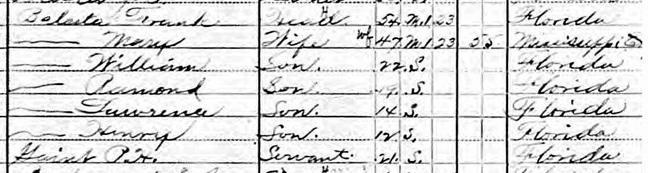 Balesta Frank Head 54 M.1 23 Florida
— Mary Wife wf 47 M.1 23 5 5 Mississippi
— William Son. 22 S. Florida
— Ramond Son 19 S. Florida
— Lawrence Son. 14 S. Florida
— Henry Son. 12 S. Florida
P.H. Servant. 21 S. Florida